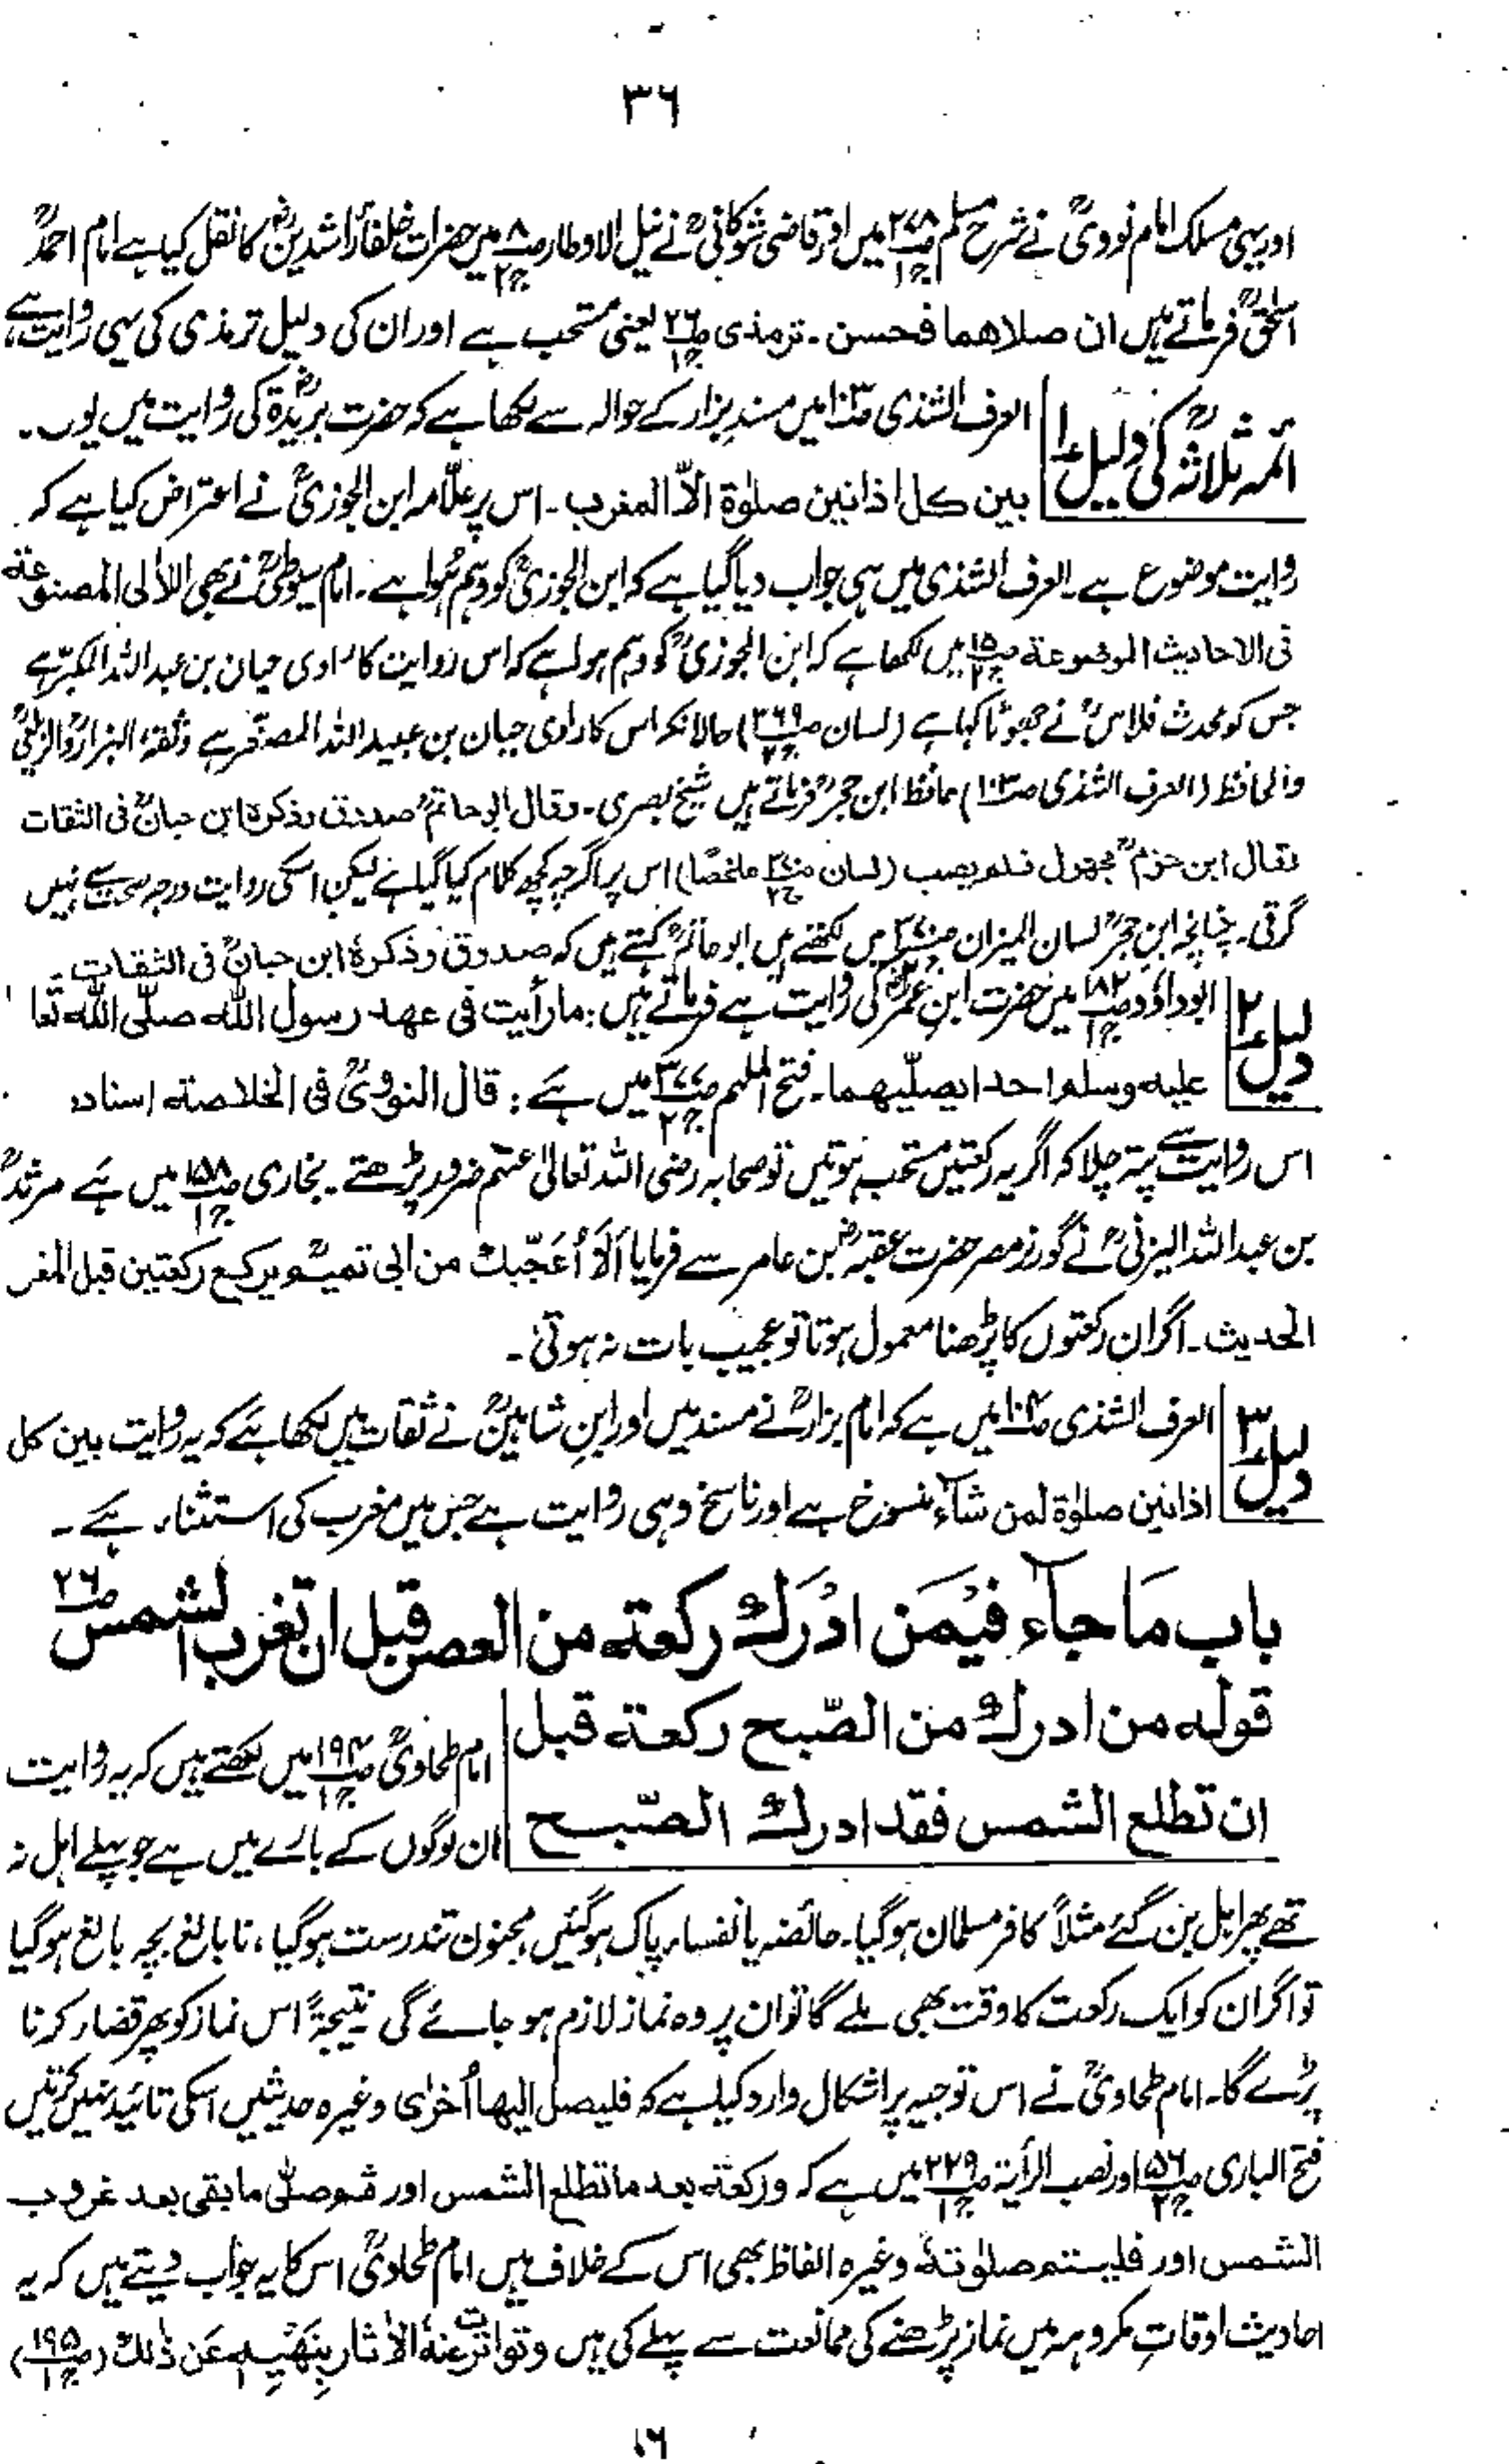 ۳۶
اور یہی مسلک امام نوویؒ نے شرح مسلم ص۲۷۸ ج۱ میں اور قاضی شوکانیؒ نے نیل الاوطار ص۸ ج۲ میں حضرات خلفاء راشدینؓ کا نقل کیا ہے امام احمدؒ
اسحٰقؒ فرماتے ہیں ان صلاھما فحسن۔ ترمذی ص۲۶ ج۱ یعنی مستحب ہے اور ان کی دلیل ترمذی کی یہی روایت ہے
ائمہ ثلاثہؒ کی دلیل ۱ العرف الشذی ص۱۰۳ میں مسند بزار کے حوالہ سے لکھا ہے کہ حضرت بریدۃؓ کی روایت میں یوں۔
بین کل اذانین صلوٰۃ الّا المغرب۔ اس پر علّامہ ابن الجوزیؒ نے اعتراض کیا ہے کہ
روایت موضوع ہے۔ العرف الشذی میں ہی جواب دیا گیا ہے کہ ابن الجوزیؒ کو وہم ہُوا ہے۔ امام سیوطیؒ نے بھی اللاٰلی المصنوعۃ
فی الاحادیث الموضوعۃ ص۱۵ ج۲ میں لکھا ہے کہ ابن الجوزیؒ کو وہم ہوا ہے کہ اس روایت کا راوی حیان بن عبد اللہ المکبّر ہے
جس کو محدث فلاسؒ نے جھوٹا کہا ہے (لسان ص۳۶۹ ج۲) حالانکہ اس کا راوی حیان بن عبید اللہ المصغّر ہے وثقہٗ البزارؒ والزیلعیؒ
والحافظ (العرف الشذی ص۱۰۳) حافظ ابن حجرؒ فرماتے ہیں شیخ بصری۔ وقال ابو حاتمؒ صدوق وذکرہٗ ابن حبانؒ فی الثقات
وقال ابن حزمؒ مجہول فلم یصب (لسان ص۳۷۰ ج۲ ملخصًا) اس پر اگرچہ کچھ کلام کیا گیا ہے لیکن اسکی روایت درجہ صحت سے نہیں
گرتی۔ چنانچہ ابن حجرؒ لسان المیزان ص۳۷۰ ج۲ میں لکھتے ہیں ابو حاتمؒ کہتے ہیں کہ صدوق وذکرہٗ ابن حبانؒ فی الثقات۔
دلیل ۲ ابوداؤد ص۱۸۲ ج۱ میں حضرت ابن عمرؓ کی روایت ہے فرماتے ہیں: ما رأیت فی عھد رسول اللہ صلّی اللہ تعا
علیہ وسلم احدا یصلّیھما۔ فتح الملہم ص۳۷۷ ج۲ میں ہے: قال النوویؒ فی الخلاصۃ اسنادہ
اس روایت سے پتہ چلا کہ اگر یہ رکعتیں مستحب ہوتیں تو صحابہ رضی اللہ تعالیٰ عنہم ضرور پڑھتے۔ بخاری ص۱۵۸ ج۱ میں ہے مرثدؒ
بن عبداللہ الیزنیؒ نے گورنر مصر حضرت عقبہؓ بن عامر سے فرمایا اَلَا اُعَجّبک من ابی تمیمؒ یرکع رکعتین قبل المغر
الحدیث۔ اگر ان رکعتوں کا پڑھنا معمول ہوتا تو عجیب بات نہ ہوتی۔
دلیل ۳ العرف الشذی ص۱۰۴ میں ہے کہ امام بزارؒ نے مسند میں اور ابنِ شاہینؒ نے ثقات میں لکھا ہے کہ یہ روایت بین کل
اذانین صلوٰۃ لمن شآء منسوخ ہے اور ناسخ وہی روایت ہے جس میں مغرب کی استثناء ہے۔
باب مَا جآء فیْمَن ادْرَک رکعۃ من العصر قبل ان تغرب الشمس ص۲۶
قولہ من ادرک من الصّبح رکعۃ قبل
ان تطلع الشمس فقد ادرک الصّبح
امام طحاویؒ ص۱۹۴ ج۱ میں لکھتے ہیں کہ یہ روایت
ان لوگوں کے بارے میں ہے جو پہلے اہل نہ
تھے پھر اہل بن گئے مثلاً کافر مسلمان ہوگیا۔ حائضہ یا نفساء پاک ہوگئیں مجنون تندرست ہوگیا، نابالغ بچہ بالغ ہوگیا
تو اگر ان کو ایک رکعت کا وقت بھی ملے گا تو ان پر وہ نماز لازم ہو جائے گی نتیجۃً اس نماز کو پھر قضاء کرنا
پڑے گا۔ امام طحاویؒ نے اس توجیہ پر اشکال وارد کیا ہے کہ فلیصل الیھا اُخرٰی وغیرہ حدیثیں اسکی تائید نہیں کرتیں
فتح الباری ص۵۶ ج۲ اور نصب الرأیۃ ص۲۲۹ ج۱ میں ہے کہ ورکعۃ بعد ما تطلع الشمس اور ثم صلّی ما بقی بعد غروب
الشمس اور فلیتم صلوٰتہٗ وغیرہ الفاظ بھی اس کے خلاف ہیں امام طحاویؒ اس کا یہ جواب دیتے ہیں کہ یہ
احادیث اوقاتِ مکروہہ میں نماز پڑھنے کی ممانعت سے پہلے کی ہیں وتواترت عنہُ الاٰثار بِنَھْیِہٖ عَن ذٰلک (ص۱۹۵ ج۱)